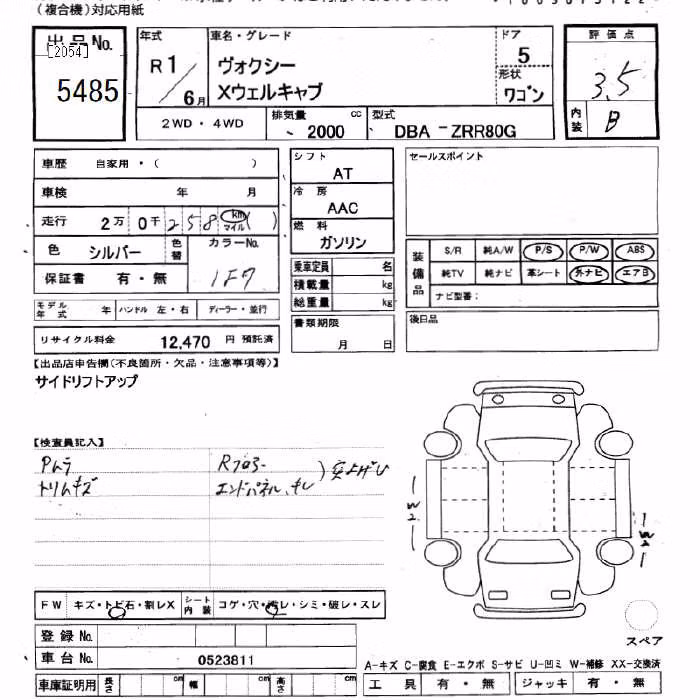 (複合機)対応用紙
出品No.
[2054]
5485
年式
R1/6月
車名・グレード
ヴォクシー
Xウェルキャブ
ドア
5
形状
ワゴン
評価点
3.5
内装
B
2WD・4WD
排気量
2000 cc
型式
DBA -ZRR80G
車歴 自家用・( )
車検 年 月
走行 2万 0千 2 5 8 km マイル ( )
色 シルバー 色替
カラーNo.
1F7
保証書 有・無
モデル年式 年 ハンドル 左・右 ディーラー・並行
リサイクル料金 12,470 円 預託済
シフト
AT
冷房
AAC
燃料
ガソリン
乗車定員 名
積載量 kg
総重量 kg
書類期限
月 日
セールスポイント
装備品
S/R 純A/W P/S P/W ABS
純TV 純ナビ 革シート 外ナビ エアB
ナビ型番:
後日品
【出品店申告欄(不良箇所・欠品・注意事項等)】
サイドリフトアップ
【検査員記入】
Pムラ
トリムキズ
Rフロアー
エンドパネル、キレ
)突上げし
W2
W2
FW キズ・トビ石・割レX
シート内装 コゲ・穴・汚レ・シミ・破レ・スレ
登録No.
車台No. 0523811
車庫証明用 長さ cm 幅 cm 高さ cm
スペア
A-キズ C-腐食 E-エクボ S-サビ U-凹ミ W-補修 XX-交換済
工具 有・無 ジャッキ 有・無